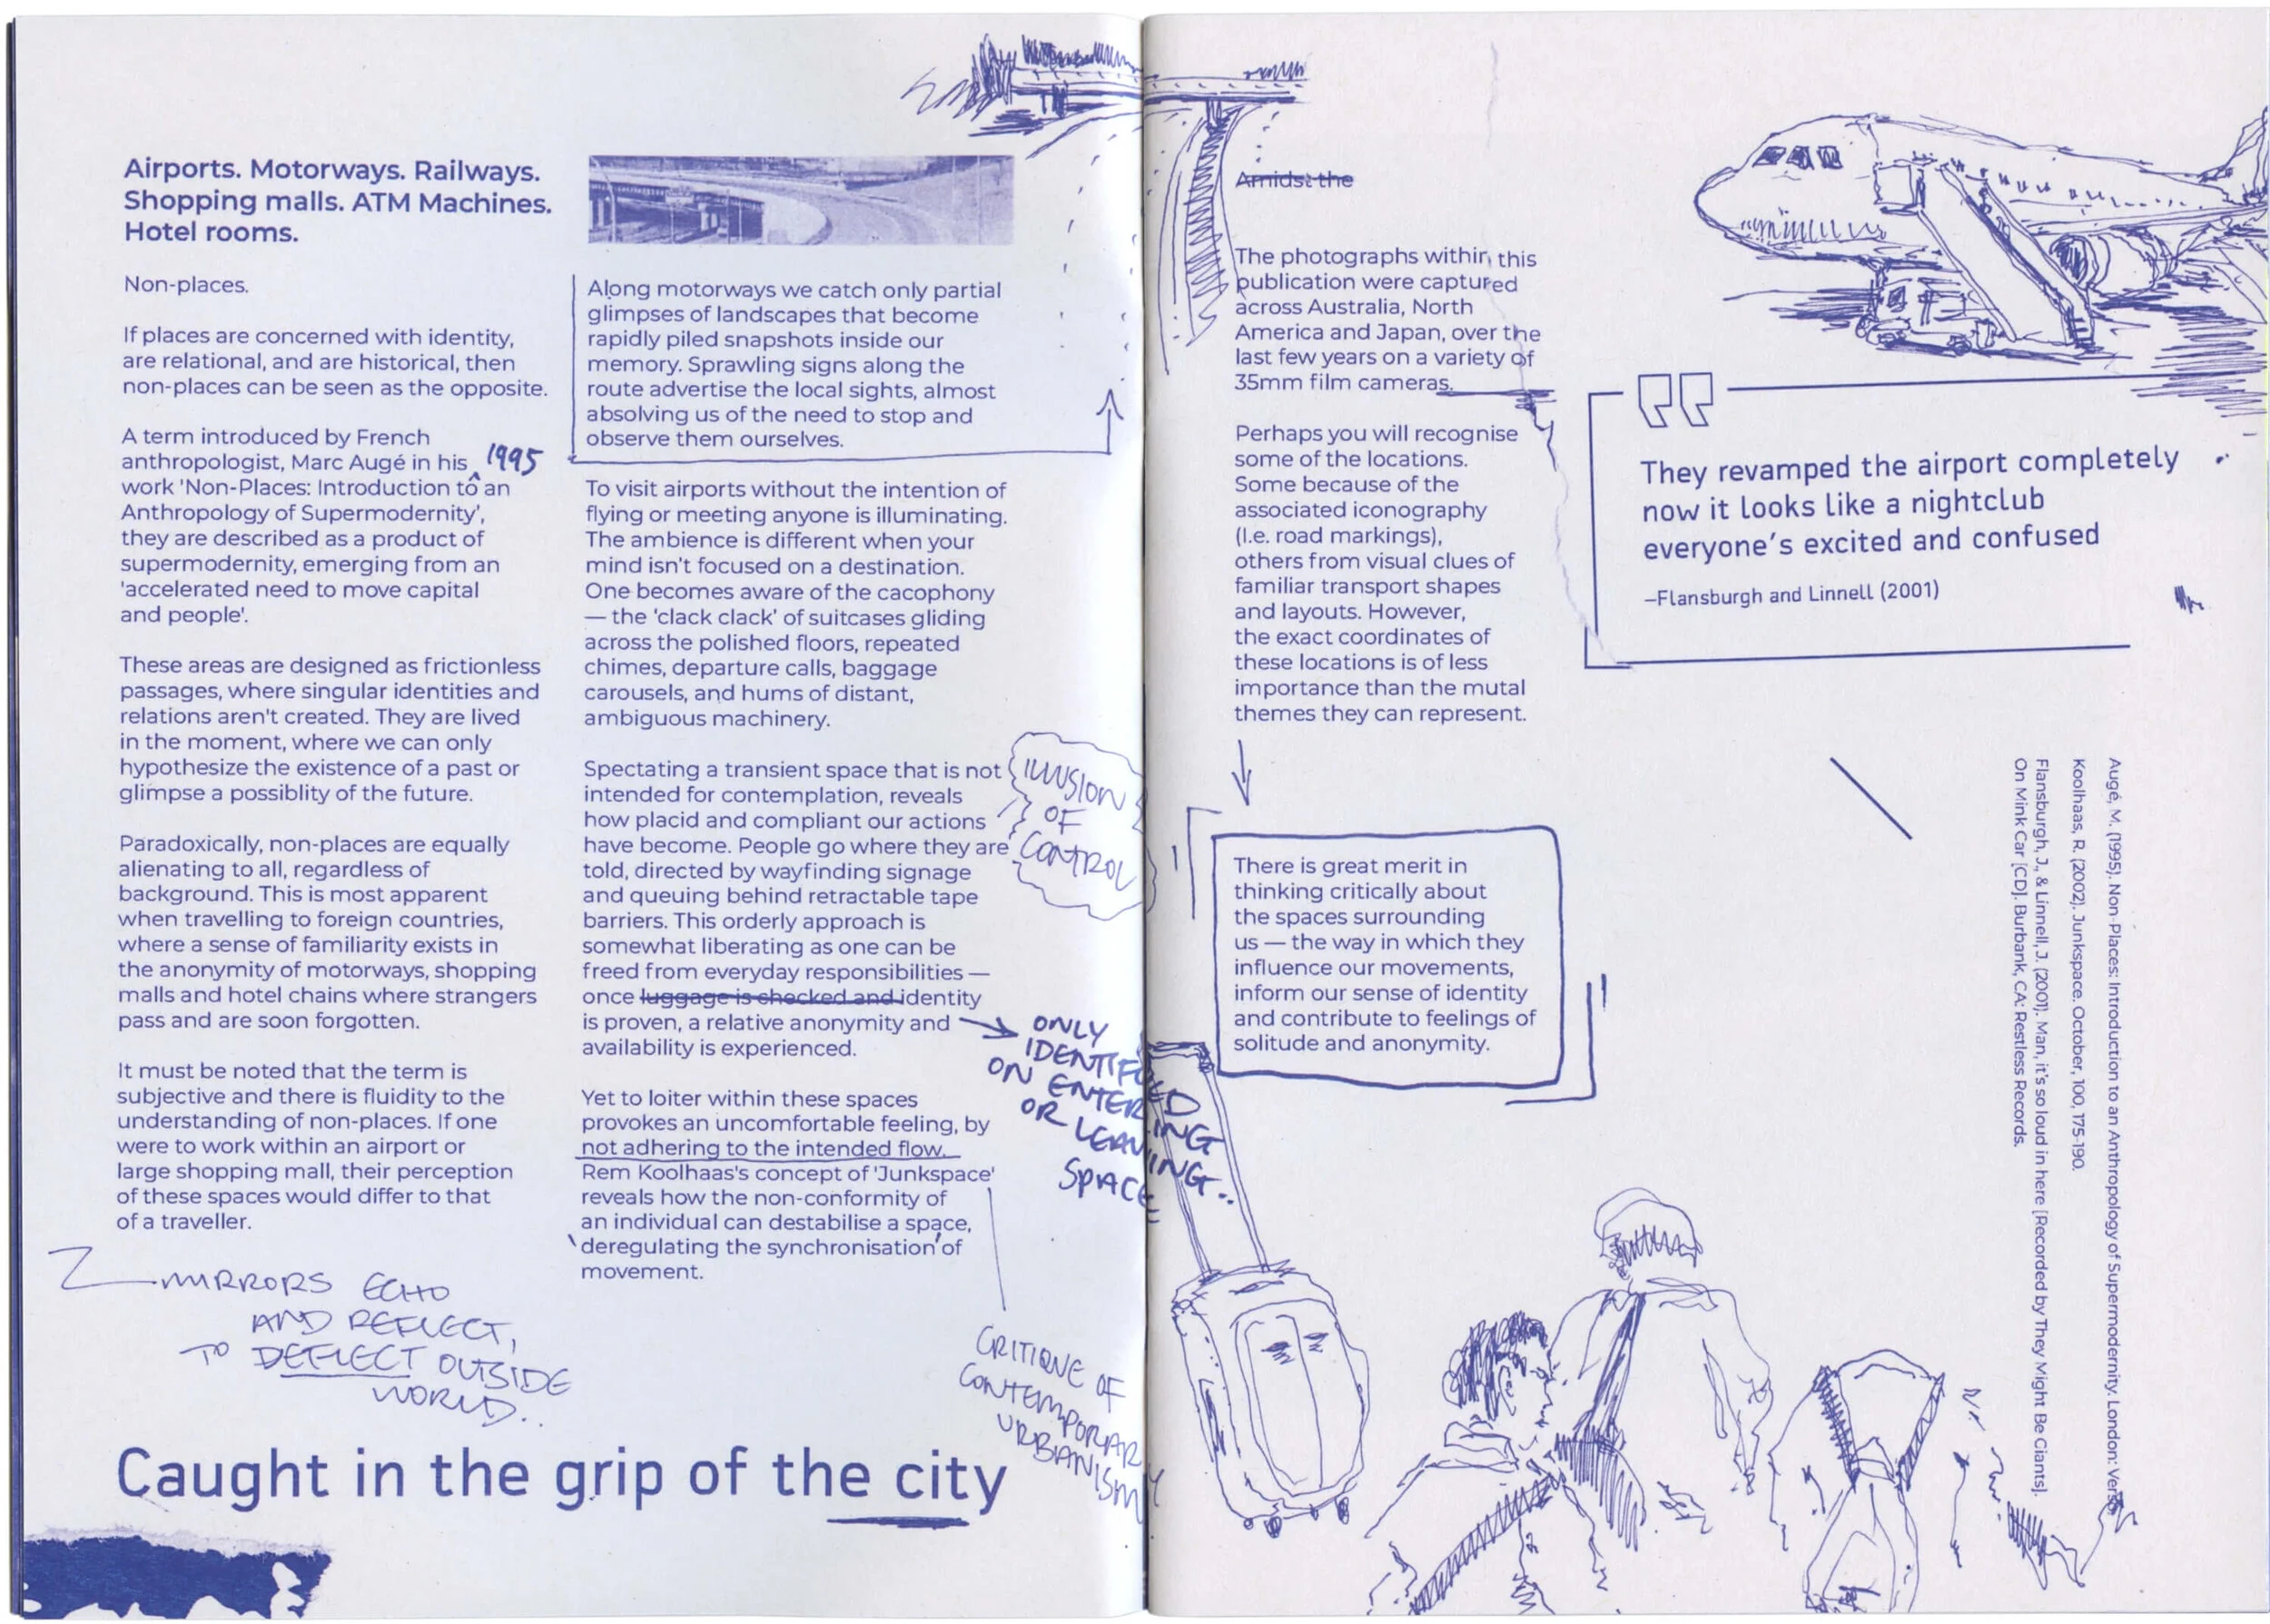 Airports. Motorways. Railways.
Shopping malls. ATM Machines.
Hotel rooms.
Non-places.
If places are concerned with identity,
are relational, and are historical, then
non-places can be seen as the opposite.
A term introduced by French
anthropologist, Marc Augé in his 1995
work 'Non-Places: Introduction to an
Anthropology of Supermodernity',
they are described as a product of
supermodernity, emerging from an
'accelerated need to move capital
and people'.
These areas are designed as frictionless
passages, where singular identities and
relations aren't created. They are lived
in the moment, where we can only
hypothesize the existence of a past or
glimpse a possiblity of the future.
Paradoxically, non-places are equally
alienating to all, regardless of
background. This is most apparent
when travelling to foreign countries,
where a sense of familiarity exists in
the anonymity of motorways, shopping
malls and hotel chains where strangers
pass and are soon forgotten.
It must be noted that the term is
subjective and there is fluidity to the
understanding of non-places. If one
were to work within an airport or
large shopping mall, their perception
of these spaces would differ to that
of a traveller.
MIRRORS ECHO
AND REFLECT,
TO DEFLECT OUTSIDE
WORLD..
Caught in the grip of the city
Along motorways we catch only partial
glimpses of landscapes that become
rapidly piled snapshots inside our
memory. Sprawling signs along the
route advertise the local sights, almost
absolving us of the need to stop and
observe them ourselves.
To visit airports without the intention of
flying or meeting anyone is illuminating.
The ambience is different when your
mind isn't focused on a destination.
One becomes aware of the cacophony
— the 'clack clack' of suitcases gliding
across the polished floors, repeated
chimes, departure calls, baggage
carousels, and hums of distant,
ambiguous machinery.
Spectating a transient space that is not
intended for contemplation, reveals
how placid and compliant our actions
have become. People go where they are
told, directed by wayfinding signage
and queuing behind retractable tape
barriers. This orderly approach is
somewhat liberating as one can be
freed from everyday responsibilities —
once luggage is checked and identity
is proven, a relative anonymity and
availability is experienced.
Yet to loiter within these spaces
provokes an uncomfortable feeling, by
not adhering to the intended flow.
Rem Koolhaas's concept of 'Junkspace'
reveals how the non-conformity of
an individual can destabilise a space,
'deregulating the synchronisation' of
movement.
ILLUSION
OF
CONTROL
ONLY
IDENTIFIED
ON ENTERING
OR LEAVING..
SPACE
CRITIQUE OF
CONTEMPORARY
URBANISM
Amidst the
The photographs within this
publication were captured
across Australia, North
America and Japan, over the
last few years on a variety of
35mm film cameras.
Perhaps you will recognise
some of the locations.
Some because of the
associated iconography
(I.e. road markings),
others from visual clues of
familiar transport shapes
and layouts. However,
the exact coordinates of
these locations is of less
importance than the mutal
themes they can represent.
There is great merit in
thinking critically about
the spaces surrounding
us — the way in which they
influence our movements,
inform our sense of identity
and contribute to feelings of
solitude and anonymity.
They revamped the airport completely
now it looks like a nightclub
everyone's excited and confused
–Flansburgh and Linnell (2001)
Augé, M. (1995). Non-Places: Introduction to an Anthropology of Supermodernity. London: Verso
Koolhaas, R. (2002). Junkspace. October, 100, 175-190.
Flansburgh, J., & Linnell, J. (2001). Man, it's so loud in here [Recorded by They Might Be Giants].
On Mink Car [CD]. Burbank, CA: Restless Records.